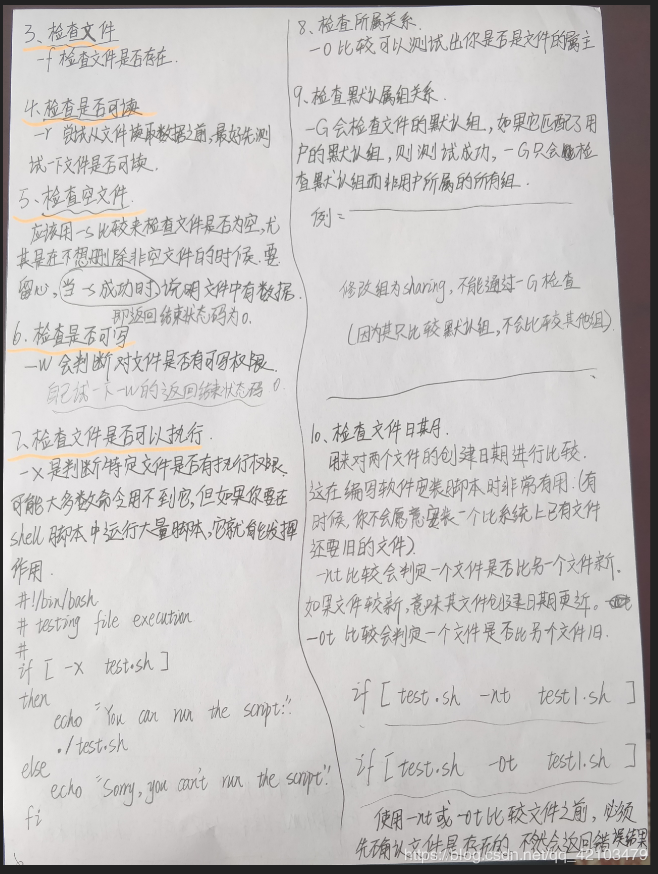 3、检查文件
-f 检查文件是否存在.
4.检查是否可读
-r 尝试从文件读取数据之前,最好先测
试一下文件是否可读.
5、检查空文件.
应该用-s比较来检查文件是否为空,尤
其是在不想删除非空文件的时候.要
留心,当-s成功时,说明文件中有数据.
即返回结束状态码为0.
6、检查是否可写
-w 会判断对文件是否有可写权限.
自己试一下-w的返回结束状态码 0.
7、检查文件是否可以执行.
-x 是判断特定文件是否有执行权限.
可能大多数命令用不到它,但如果你要在
shell 脚本中运行大量脚本,它就能发挥
作用.
#!/bin/bash
# testing file execution
#
if [ -x test.sh ]
then
echo "You can run the script:".
./test.sh
else
echo "Sorry, you can't run the script".
fi
8、检查所属关系.
-O 比较可以测试出你是否是文件的属主
9、检查默认属组关系.
-G会检查文件的默认组,如果它匹配了用
户的默认组,则测试成功,-G只会检
查默认组而非用户所属的所有组.
例=
修改组为sharing,不能通过-G检查
(因为其只比较默认组,不会比较其他组).
10、检查文件日期.
用来对两个文件的创建日期进行比较.
这在编写软件安装脚本时非常有用.(有
时候,你不会愿意安装一个比系统上已有文件
还要旧的文件)
-nt比较会判定一个文件是否比另一个文件新.
如果文件较新,意味其文件创建日期更近。
-ot 比较会判定一个文件是否比另个文件旧.
if [ test.sh -nt test1.sh ]
if [ test.sh -ot test1.sh ]
使用-nt或-ot比较文件之前,必须
先确认文件是存在的 不然会返回错误结果
https://blog.csdn.net/qq_42103479